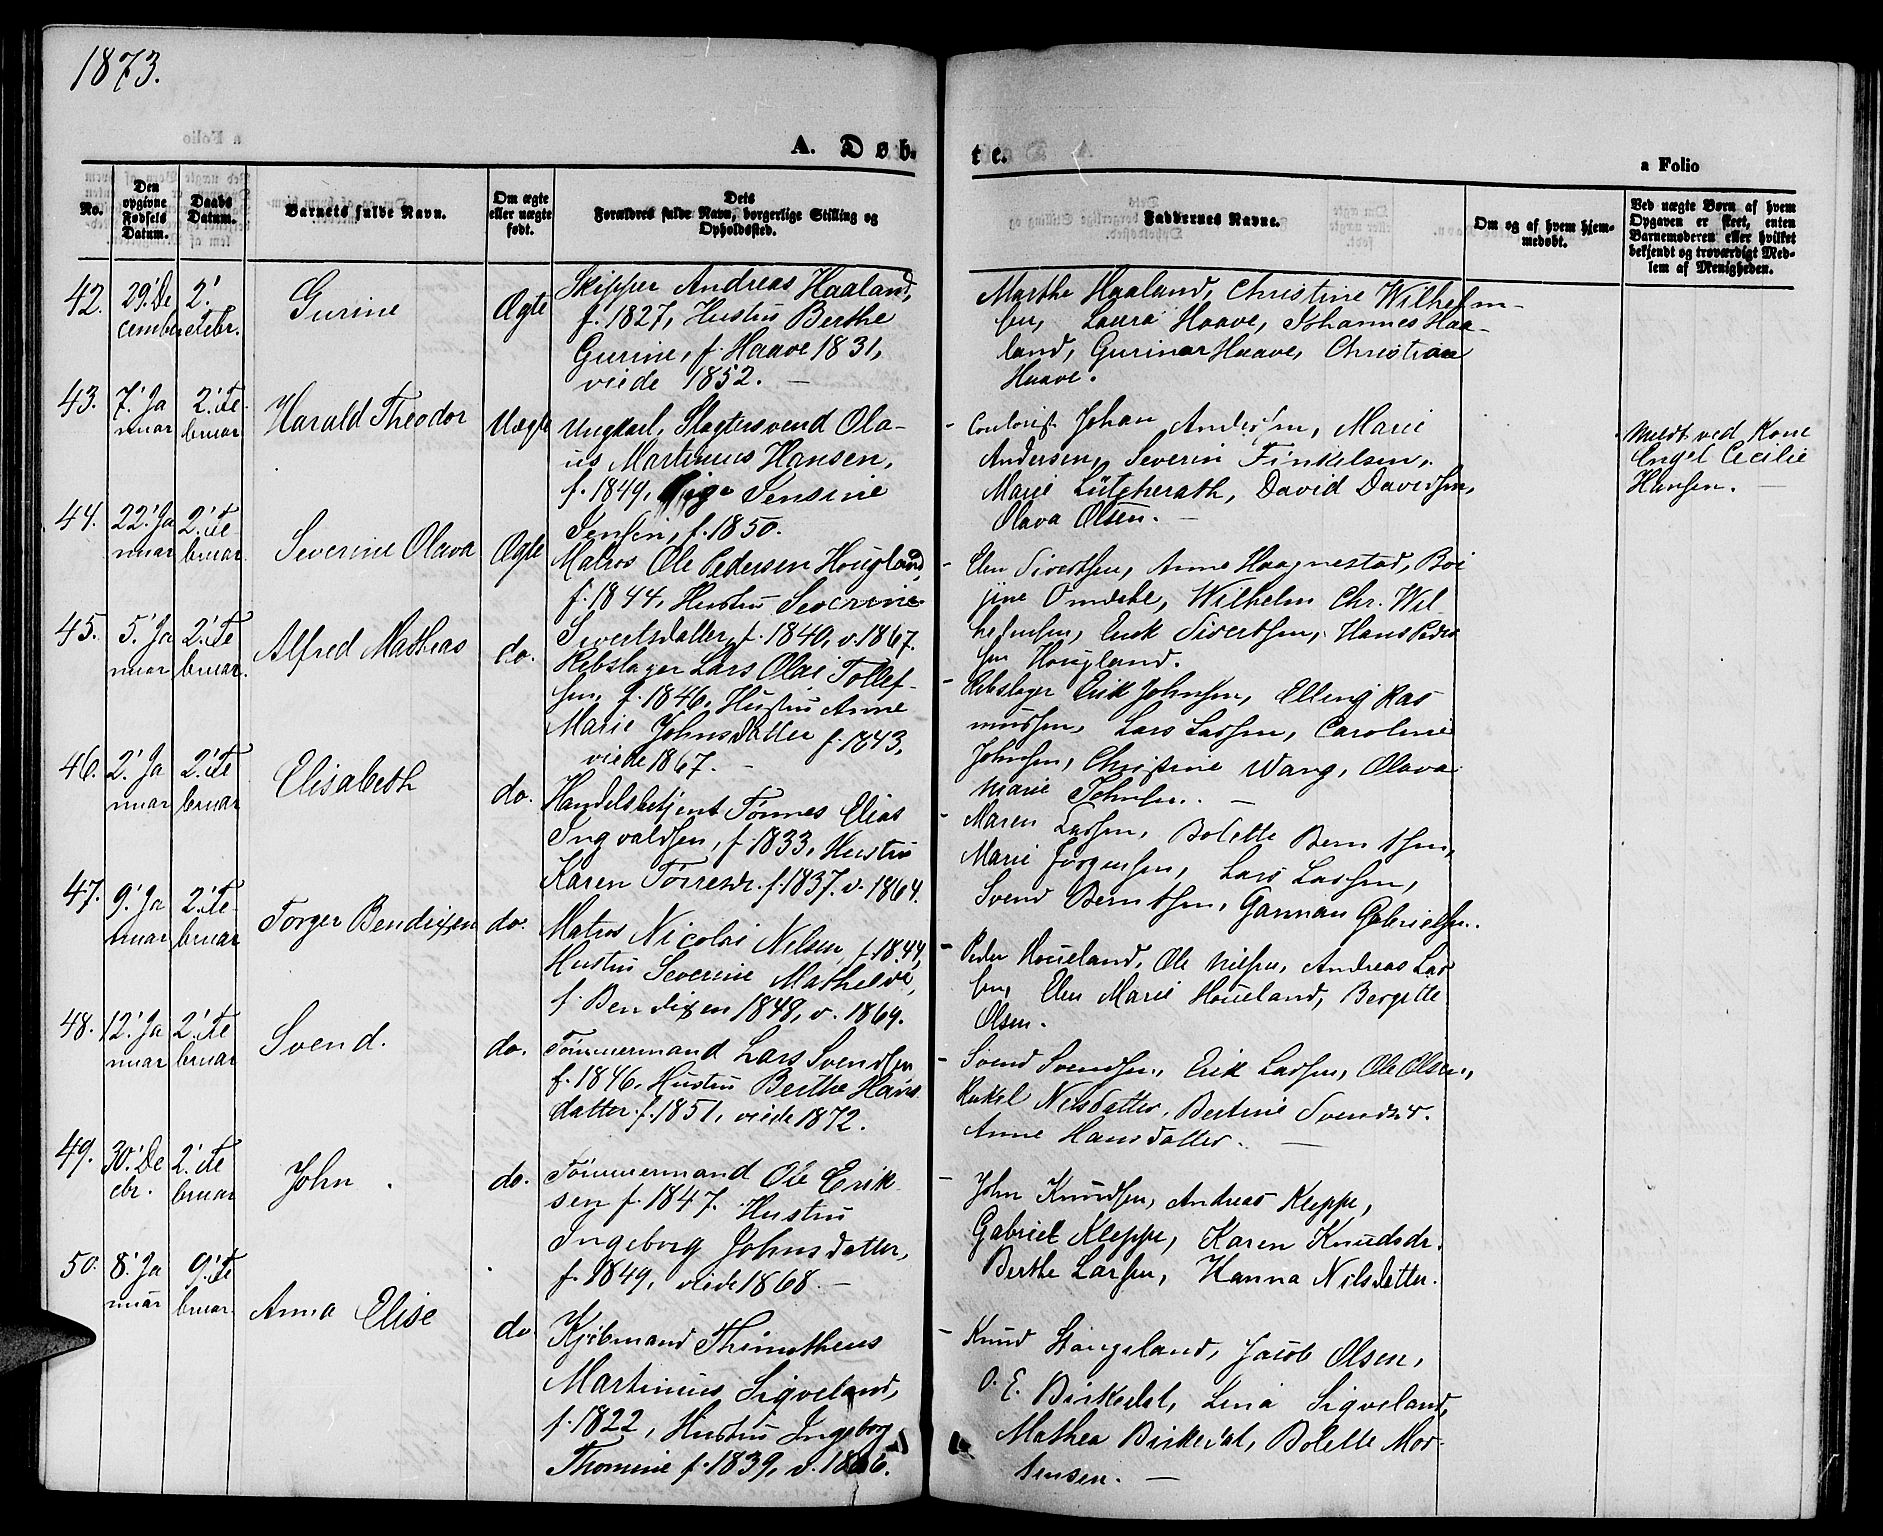 1873.
A. Døb-
te.
a Folio
No.
Den opgivne Fødsels Datum.
Daabs Datum.
Barnets fulde Navn.
Om ægte eller uægte født.
Dets Forældres fulde Navn, borgerlige Stilling og Opholdssted.
Faddernes Navne.
Om og af hvem hjemmedøbt.
Ved uægte Børn af hvem Opgaven er skeet, enten Barnemoderen eller hvilket bekjendt og troværdigt Medlem af Menigheden.
42. 29' December 2' Febr. Gurine Ægte
Skipper Andreas Haaland,
f. 1827, Hustru Berthe
Gurine, f. Haave 1831,
viede 1852. —
Marthe Haaland, Christine Wilhelm-
sen, Laura Haave, Johannes Haa-
land, Gurinar Haave, Christian
Haave.
43. 7' Januar 2' Februar Harald Theodor Uægte
Ungkarl, Slagtersvend Ola-
us Martinius Hansen,
f. 1849, Pige Jensine
Jensen, f. 1850.
Contorist Johan Andersen, Marie
Andersen, Severin Finkelsen,
Marie Lütcherath, David Davidsen,
Olava Olsen. —
Meldt ved Kone
Engel Cecilie
Hansen. —
44. 22' Januar 2' Februar Severine Olava Ægte
Matros Ole Pedersen Hougland,
f. 1844, Hustru Severine
Sivertsdatter f. 1840, v. 1867.
Elen Sivertsen, Anne Haagnestad, Boi
jine Omdahl, Wilhelm Chr. Wil-
helmsen, Erik Sivertsen, Hans Peder
sen Hougland.
45. 5' Januar 2' Februar Alfred Mathias do.
Rebslager Lars Olai Tollef-
sen, f. 1846, Hustru Anne
Marie Johnsdatter f. 1843,
viede 1867. —
Rebslager Erik Johnsen, Elling Ras
mussen, Lars Larsen, Caroline
Johnsen, Christine Wang, Olava
Marie Johnsen. —
46. 2' Januar 2' Februar Elisabeth do.
Handelsbetjent Tønnes Elias
Ingvaldsen, f. 1833, Hustru
Karen Torresdr. f. 1837. v. 1864.
Maren Larsen, Bolette Berntsen,
Marie Jørgensen, Lars Larsen,
Svend Berntsen, Garman Gabrielsen.
47. 9' Januar 2' Februar Torger Bendixen do.
Matros Nicolai Nilsen, f. 1844,
Hustru Severine Mathelde,
f. Bendixen 1848, v. 1869.
Peder Houeland, Ole Nilsen, Andreas Lar
sen, Elen Marie Houeland, Bergitte
Olsen.
48. 12' Januar 2' Februar Svend. do.
Tømmermand Lars Svendsen
f. 1846, Hustru Berthe Hans
datter f. 1851, viede 1872.
Svend Svendsen, Erik Larsen, Ole Olsen,
Rakel Nilsdatter, Bertine Svendsdr.
Anne Hansdatter. —
49. 30' Decbr. 2' Februar John. do.
Tømmermand Ole Erik-
sen f. 1847. Hustru
Ingeborg Johnsdatter,
f. 1849, viede 1868. —
John Knudsen, Andreas Kleppe,
Gabriel Kleppe, Karen Knudsdr.
Berthe Larsen, Hanna Nilsdatter.
50. 8' Januar 9' Februar. Anna Elise do.
Kjøbmand Thimotheus
Martinius Sigveland,
f. 1822, Hustru Ingeborg
Thomine f. 1839, v. 1866.
Knud Stangeland, Jacob Olsen,
O. E. Birkedal, Lina Sigveland,
Mathea Birkedal, Bolette Mor-
tensen. —